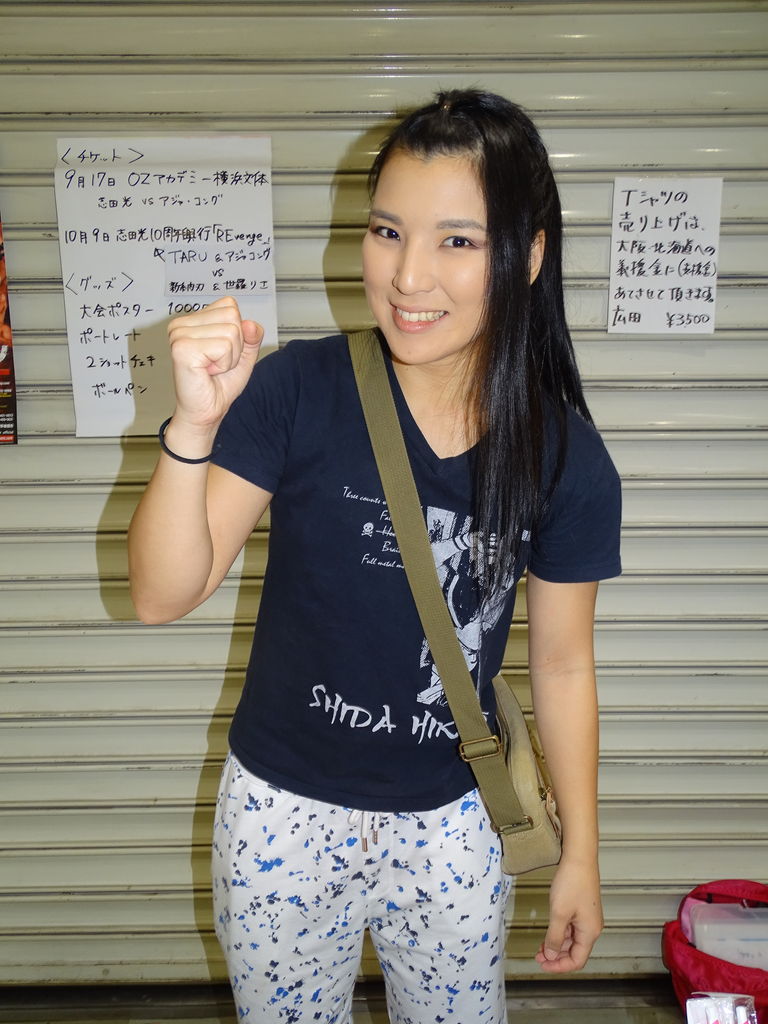 〈チケット〉
9月17日 OZアカデミー横浜文体
志田光 VS アジャ・コング
10月9日 志田光10周年興行「REvenge」
TARU & アジャコング
VS
& 世羅りエ
〈グッズ〉
大会ポスター 1000
ポートレート
2ショットチェキ
ボールペン
Tシャツの
売り上げは、
大阪・北海道への
義援金に(支援金)
あてさせて頂きます。
広田 ¥3500
Three counts
Full metal
SHIDA HIK